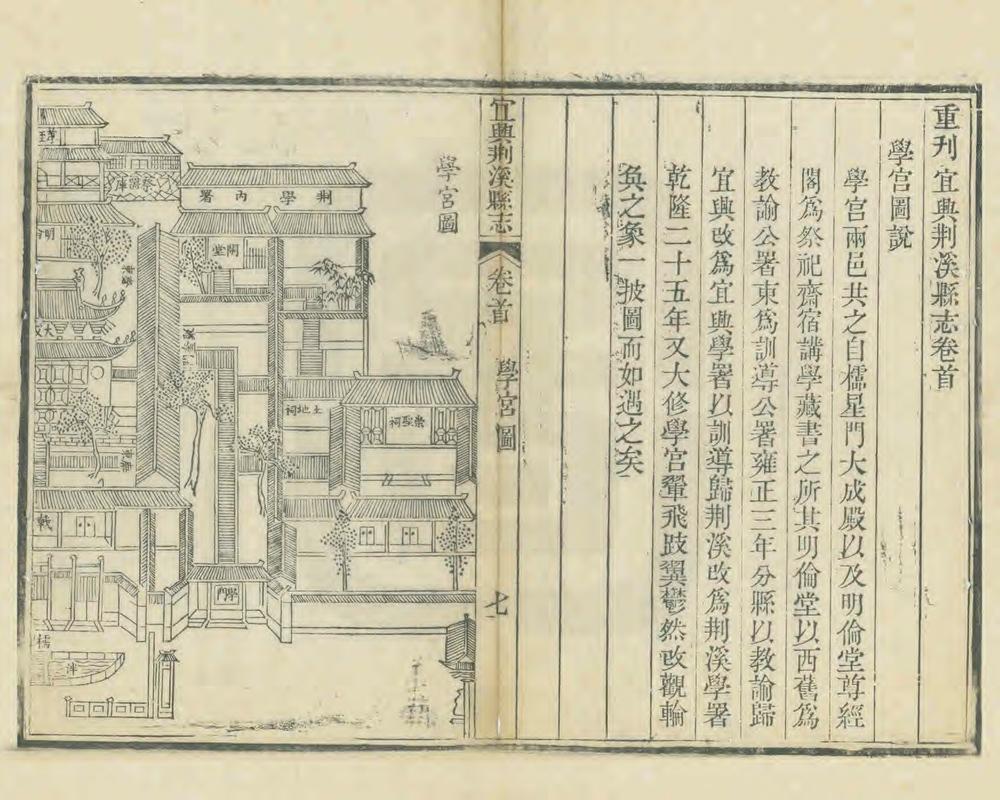 重刋宜興荆溪縣志卷首
學宮圖說
學宮兩邑共之自櫺星門大成殿以及明倫堂尊經
閣爲祭祀齋宿講學藏書之所其明倫堂以西舊爲
教諭公署東爲訓導公署雍正三年分縣以教諭歸
宜興改爲宜興學署以訓導歸荆溪改爲荆溪學署
乾隆二十五年又大修學宮翬飛跂翼鬱然改觀輪
奐之象一披圖而如遇之矣
宜興荆溪縣志
卷首
學宮圖
七
學宮圖
荆學內署
祭器庫
土地祠
崇聖祠
學門
戟
泮
明
大